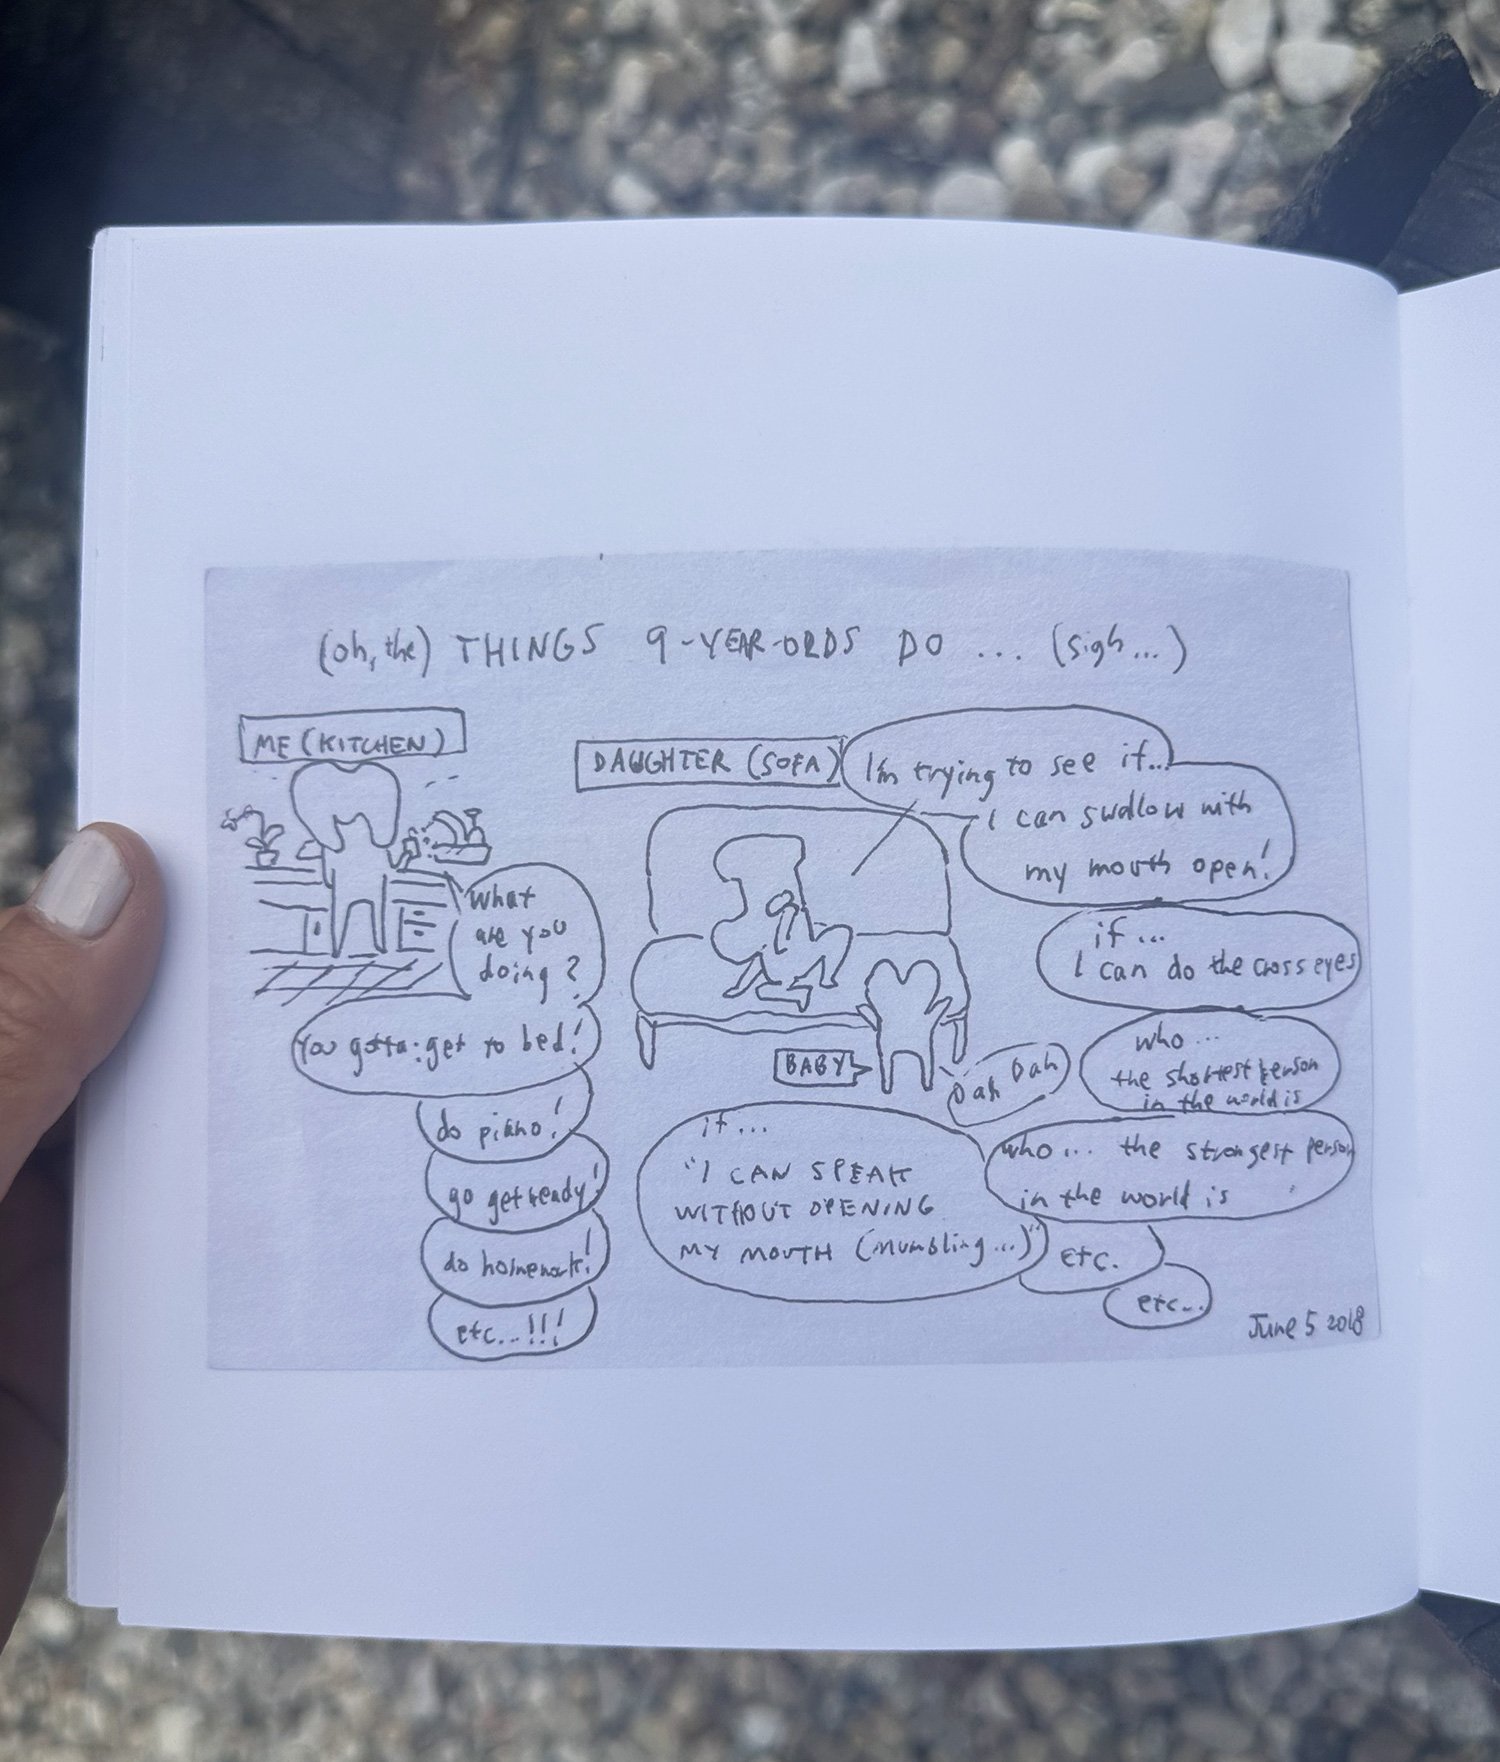 (oh, the) THINGS 9-YEAR-OLDS DO ... (sigh...)
ME (KITCHEN)
What
are you
doing?
You gotta get to bed!
do piano!
go get ready!
do homework!
etc...!!!
DAUGHTER (SOFA)
I'm trying to see if...
I can swallow with
my mouth open!
if ...
I can do the cross eyes
who ...
the shortest person
in the world is
who ... the strongest person
in the world is
BABY
Dah Dah
if ...
"I CAN SPEAK
WITHOUT OPENING
MY MOUTH (mumbling...)"
etc.
etc...
June 5 2018